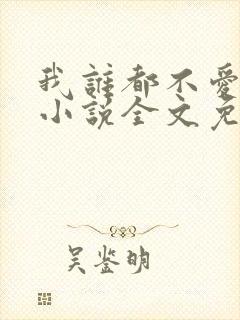 我誰都不愛
小說全文免
吴鉴明